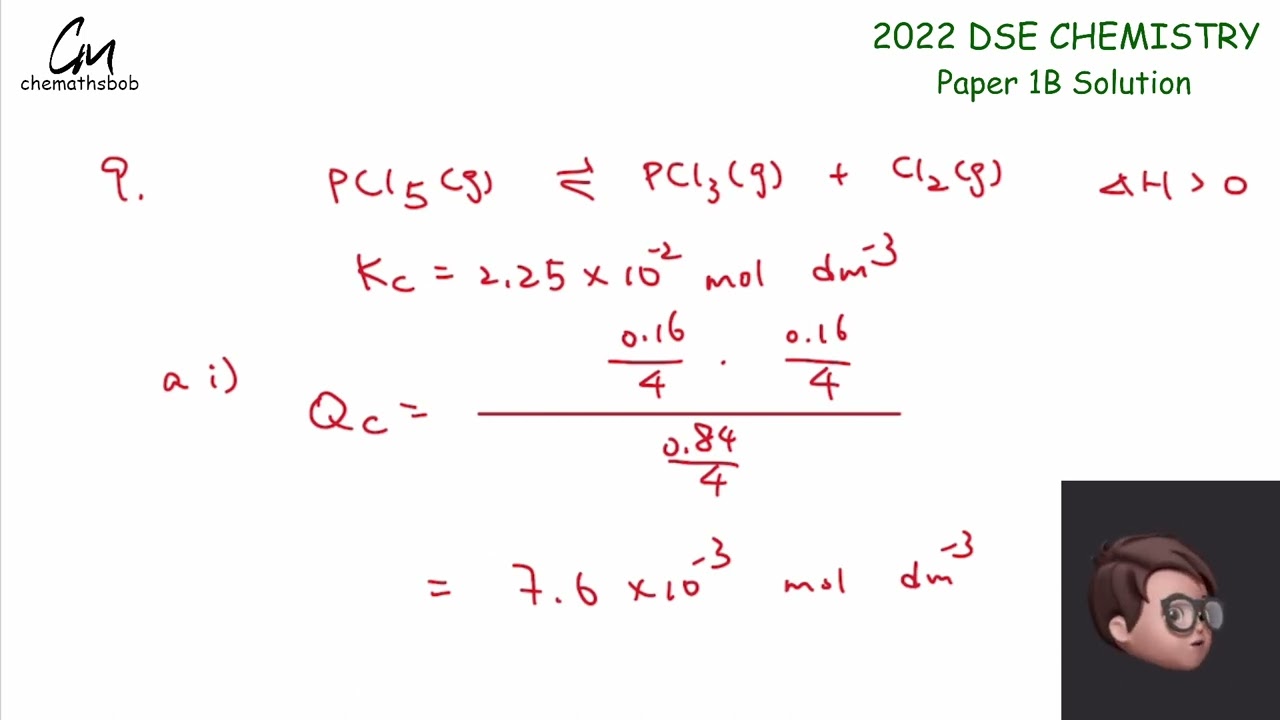 CM
chemathsbob
2022 DSE CHEMISTRY
Paper 1B Solution
9. PCl₅(g) ⇌ PCl₃(g) + Cl₂(g) ΔH > 0
Kc = 2.25 × 10⁻² mol dm⁻³
a i) Qc = (0.16/4 · 0.16/4) / (0.84/4)
= 7.6 × 10⁻³ mol dm⁻³